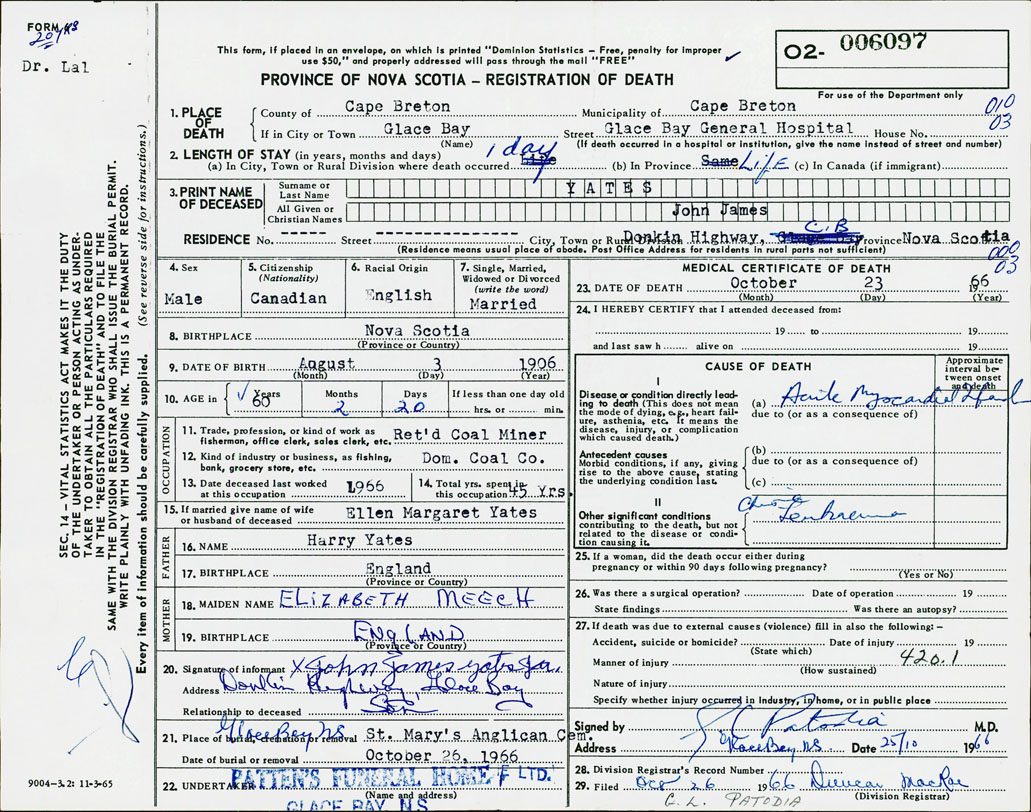 FORM
Dr. Lal
This form, if placed in an envelope, on which is printed "Dominion Statistics – Free, penalty for improper
use $50," and properly addressed will pass through the mail "FREE"
PROVINCE OF NOVA SCOTIA – REGISTRATION OF DEATH
O2- 006097
For use of the Department only
010
03
1. PLACE OF DEATH
County of Cape Breton Municipality of Cape Breton
If in City or Town Glace Bay Street Glace Bay General Hospital House No.
(Name) (If death occurred in a hospital or institution, give the name instead of street and number)
2. LENGTH OF STAY (in years, months and days) 1 day
(a) In City, Town or Rural Division where death occurred Life (b) In Province Same Life (c) In Canada (if immigrant)
3. PRINT NAME OF DECEASED
Surname or Last Name YATES
All Given or Christian Names John James
RESIDENCE No. ----- Street -------------- City, Town or Rural Division Donkin Highway, Glace Bay C.B Province Nova Scotia
(Residence means usual place of abode. Post Office Address for residents in rural parts not sufficient)
000
03
4. Sex Male
5. Citizenship (Nationality) Canadian
6. Racial Origin English
7. Single, Married, Widowed or Divorced (write the word) Married
8. BIRTHPLACE Nova Scotia
(Province or Country)
9. DATE OF BIRTH August 3 1906
(Month) (Day) (Year)
10. AGE in Years 60 Months 2 Days 20 If less than one day old hrs. or min.
OCCUPATION
11. Trade, profession, or kind of work as fisherman, office clerk, sales clerk, etc. Ret'd Coal Miner
12. Kind of industry or business, as fishing, bank, grocery store, etc. Dom. Coal Co.
13. Date deceased last worked at this occupation 1966
14. Total yrs. spent in this occupation 45 Yrs.
15. If married give name of wife or husband of deceased Ellen Margaret Yates
FATHER
16. NAME Harry Yates
17. BIRTHPLACE England
(Province or Country)
MOTHER
18. MAIDEN NAME ELIZABETH MEECH
19. BIRTHPLACE ENGLAND
(Province or Country)
20. Signature of informant X John James Yates Jr.
Address Donkin Highway, Glace Bay
Relationship to deceased Son
21. Place of burial, cremation or removal Glace Bay NS St. Mary's Anglican Cem.
Date of burial or removal October 26, 1966
22. UNDERTAKER PATTEN'S FUNERAL HOME LTD.
(Name and address)
GLACE BAY, N.S.
MEDICAL CERTIFICATE OF DEATH
23. DATE OF DEATH October 23 1966
(Month) (Day) (Year)
24. I HEREBY CERTIFY that I attended deceased from:
19 to 19
and last saw h alive on 19
CAUSE OF DEATH
Approximate interval between onset and death
I
Disease or condition directly leading to death (This does not mean the mode of dying, e.g., heart failure, asthenia, etc. It means the disease, injury, or complication which caused death.)
(a) Acute Myocardial Infarct
due to (or as a consequence of)
Antecedent causes
Morbid conditions, if any, giving rise to the above cause, stating the underlying condition last.
(b)
due to (or as a consequence of)
(c)
II
Other significant conditions contributing to the death, but not related to the disease or condition causing it.
25. If a woman, did the death occur either during pregnancy or within 90 days following pregnancy?
(Yes or No)
26. Was there a surgical operation? Date of operation 19
State findings Was there an autopsy?
27. If death was due to external causes (violence) fill in also the following:–
Accident, suicide or homicide? Date of injury 19
(State which)
Manner of injury 420.1
(How sustained)
Nature of injury
Specify whether injury occurred in Industry, in home, or in public place
Signed by G C Patodia M.D.
Address Glace Bay NS Date 25/10 1966
28. Division Registrar's Record Number
29. Filed Oct 26 1966 Duncan MacRae
(Division Registrar)
G. L. PATODIA
SEC. 14 – VITAL STATISTICS ACT MAKES IT THE DUTY
OF THE UNDERTAKER OR PERSON ACTING AS UNDER-
TAKER TO OBTAIN ALL THE PARTICULARS REQUIRED
IN THE "REGISTRATION OF DEATH" AND TO FILE THE
SAME WITH THE DIVISION REGISTRAR WHO SHALL ISSUE THE BURIAL PERMIT.
WRITE PLAINLY WITH UNFADING INK. THIS IS A PERMANENT RECORD.
Every item of information should be carefully supplied. (See reverse side for instructions.)
9004-3.2: 11-3-65